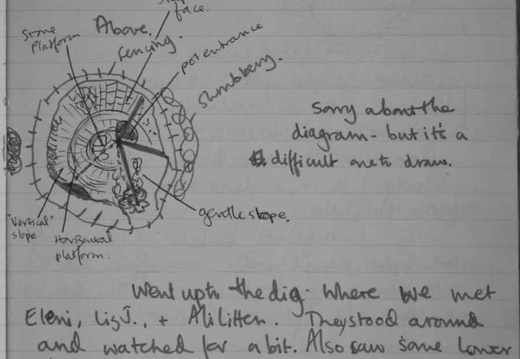 face.
Stone
platform
Above.
fencing.
pot entrance
shrubbery.
Sorry about the
diagram - but it's a
difficult one to draw.
"Vertical"
slope
Horizontal
platform.
gentle slope.
Went up to the dig. Where we met
Eleni, Liz J., + Ali Litten. They stood around
and watched for a bit. Also saw some lower